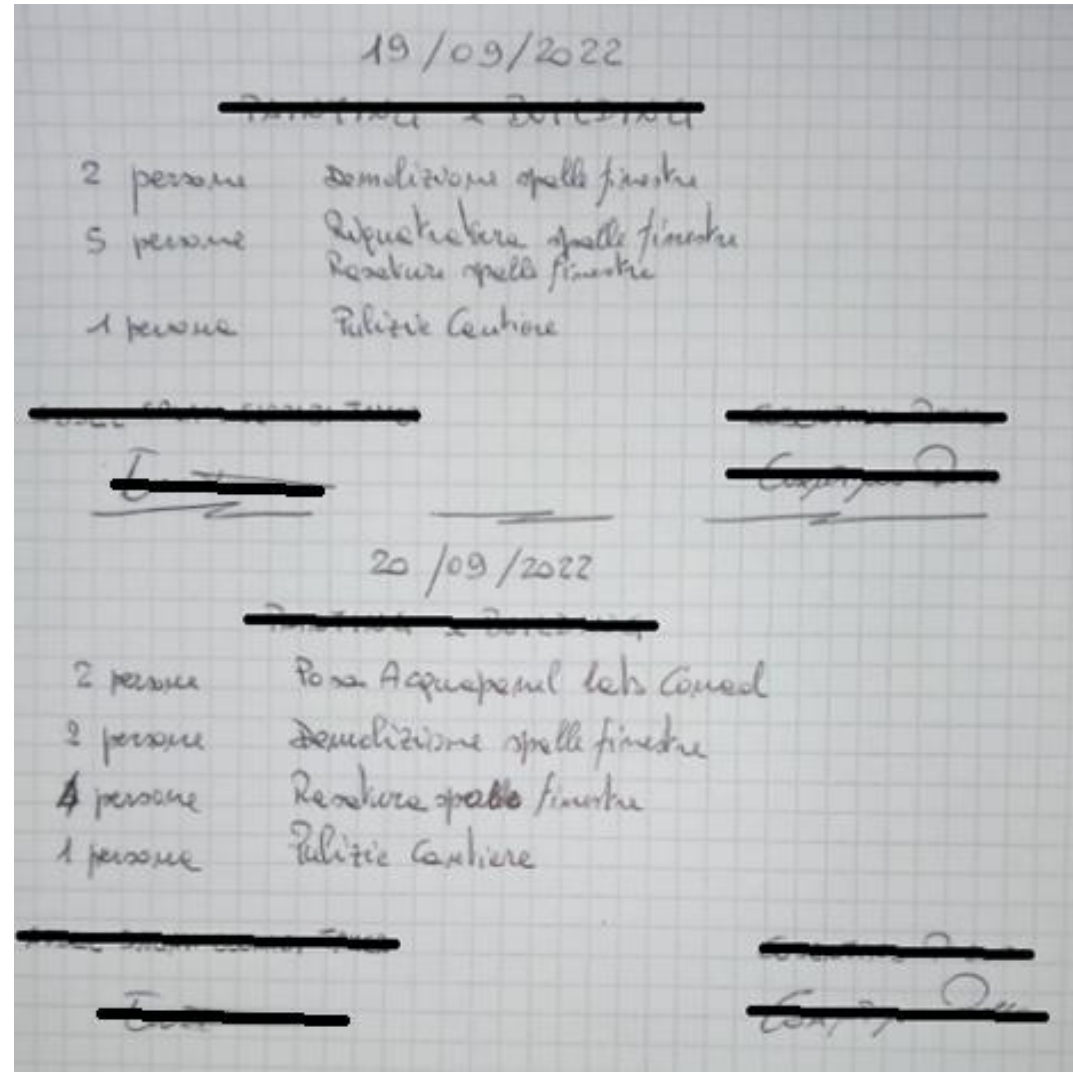 19/09/2022
2 persone Demolizione spalle finestre
5 persone Riquadratura spalle finestre
Rasatura spalle finestre
1 persona Pulizie Cantiere
20/09/2022
2 persone Posa Acquapanel lato Conad
2 persone Demolizione spalle finestre
4 persone Rasatura spalle finestre
1 persona Pulizie Cantiere